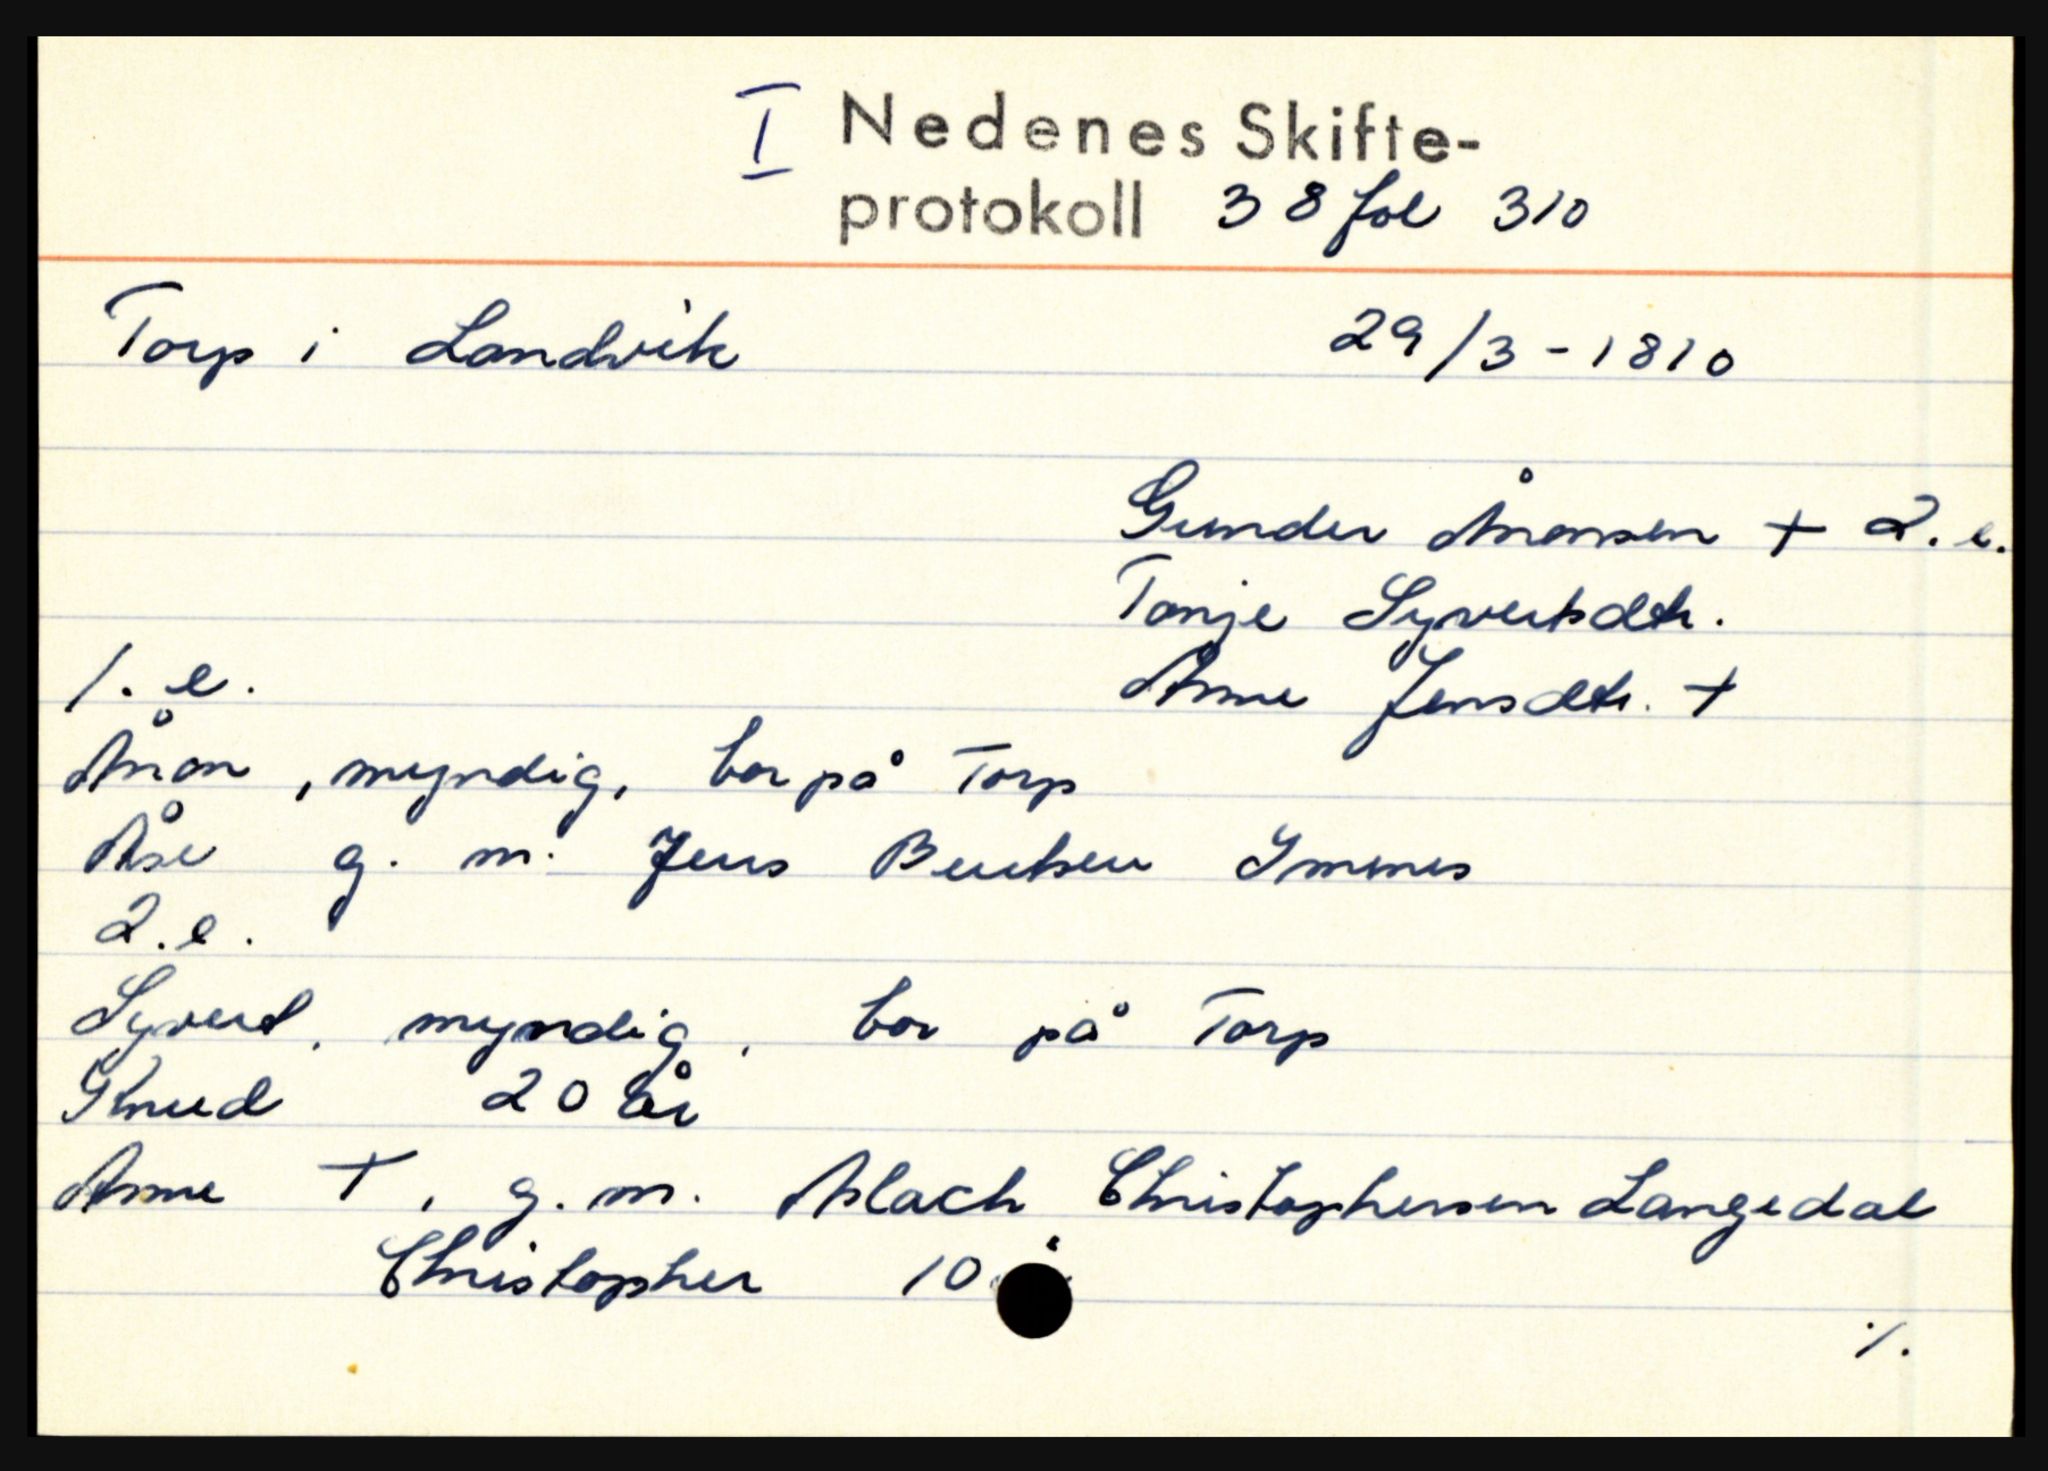 I Nedenes Skifte-
protokoll 38 fol 310
Torp i Landvik 29/3-1810
Gunder Ånonsen + 2. e.
Tonje Syvertsdtr.
1. e. Anne Jensdtr. +
Ånon, myndig, bor på Torp
Åse g. m. Jens Bentsen Immenes
2. e.
Syvert, myndig, bor på Torp
Knud 20 år
Anne +, g. m. Aslach Christophersen Langedal
Christopher 10
./.